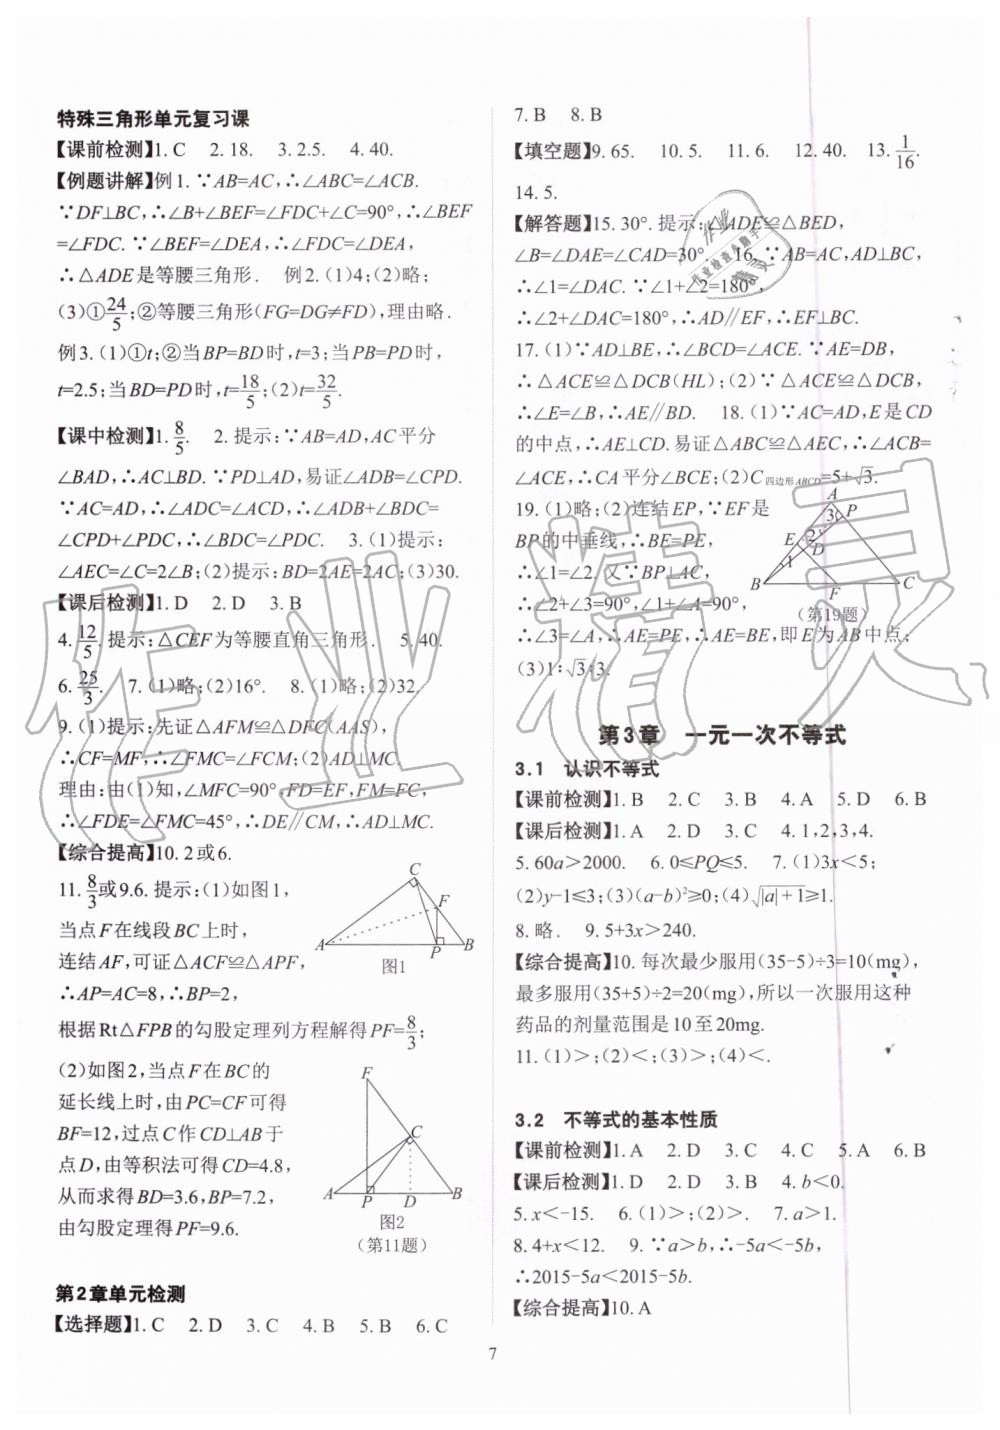 特殊三角形单元复习课
【课前检测】1. C 2. 18. 3. 2.5. 4. 40.
【例题讲解】例1. ∵AB=AC,∴∠ABC=∠ACB.
∵DF⊥BC,∴∠B+∠BEF=∠FDC+∠C=90°,∴∠BEF
=∠FDC. ∵∠BEF=∠DEA,∴∠FDC=∠DEA,
∴△ADE是等腰三角形. 例2. (1)4;(2)略;
(3)①24/5;②等腰三角形(FG=DG≠FD),理由略.
例3. (1)①t;②当BP=BD时,t=3;当PB=PD时,
t=2.5;当BD=PD时,t=18/5;(2)t=32/5.
【课中检测】1. 8/5. 2. 提示:∵AB=AD,AC平分
∠BAD,∴AC⊥BD. ∵PD⊥AD,易证∠ADB=∠CPD.
∵AC=AD,∴∠ADC=∠ACD,∴∠ADB+∠BDC=
∠CPD+∠PDC,∴∠BDC=∠PDC. 3. (1)提示:
∠AEC=∠C=2∠B;(2)提示:BD=2AE=2AC;(3)30.
【课后检测】1. D 2. D 3. B
4. 12/5. 提示:△CEF为等腰直角三角形. 5. 40.
6. 25/3. 7. (1)略;(2)16°. 8. (1)略;(2)32.
9. (1)提示:先证△AFM≌△DFC(AAS),
∴CF=MF,∴∠FMC=∠FCM;(2)AD⊥MC.
理由:由(1)知,∠MFC=90°,FD=EF,FM=FC,
∴∠FDE=∠FMC=45°,∴DE∥CM,∴AD⊥MC.
【综合提高】10. 2或6.
11. 8/3或9.6. 提示:(1)如图1,
当点F在线段BC上时,
连结AF,可证△ACF≌△APF,
∴AP=AC=8,∴BP=2,
根据Rt△FPB的勾股定理列方程解得PF=8/3;
C
F
A
P
B
图1
(2)如图2,当点F在BC的
延长线上时,由PC=CF可得
BF=12,过点C作CD⊥AB于
点D,由等积法可得CD=4.8,
从而求得BD=3.6,BP=7.2,
由勾股定理得PF=9.6.
F
C
A
P
D
B
图2
(第11题)
第2章单元检测
【选择题】1. C 2. D 3. C 4. B 5. B 6. C
7. B 8. B
【填空题】9. 65. 10. 5. 11. 6. 12. 40. 13. 1/16.
14. 5.
【解答题】15. 30°. 提示:△ADE≌△BED,
∠B=∠DAE=∠CAD=30°. 16. ∵AB=AC,AD⊥BC,
∴∠1=∠DAC. ∵∠1+∠2=180°,
∴∠2+∠DAC=180°,∴AD∥EF,∴EF⊥BC.
17. (1)∵AD⊥BE,∴∠BCD=∠ACE. ∵AE=DB,
∴△ACE≌△DCB(HL);(2)∵△ACE≌△DCB,
∴∠E=∠B,∴AE∥BD. 18. (1)∵AC=AD,E是CD
的中点,∴AE⊥CD. 易证△ABC≌△AEC,∴∠ACB=
∠ACE,∴CA平分∠BCE;(2)C四边形ABCD=5+√3.
19. (1)略;(2)连结EP,∵EF是
BP的中垂线,∴BE=PE,
∴∠1=∠2. 又∵BP⊥AC,
∴∠2+∠3=90°,∠1+∠A=90°,
∴∠3=∠A,∴AE=PE,∴AE=BE,即E为AB中点;
(3)1:√3:3.
A
3
P
2
E
D
1
B
F
C
(第19题)
第3章 一元一次不等式
3.1 认识不等式
【课前检测】1. B 2. C 3. B 4. A 5. D 6. B
【课后检测】1. A 2. D 3. C 4. 1,2,3,4.
5. 60a>2000. 6. 0≤PQ≤5. 7. (1)3x<5;
(2)y-1≤3;(3)(a-b)²≥0;(4)√|a|+1≥1.
8. 略. 9. 5+3x>240.
【综合提高】10. 每次最少服用(35-5)÷3=10(mg),
最多服用(35+5)÷2=20(mg),所以一次服用这种
药品的剂量范围是10至20mg.
11. (1)>;(2)<;(3)>;(4)<.
3.2 不等式的基本性质
【课前检测】1. A 2. D 3. C 4. C 5. A 6. B
【课后检测】1. D 2. D 3. B 4. b<0.
5. x<-15. 6. (1)>;(2)>. 7. a>1.
8. 4+x<12. 9. ∵a>b,∴-5a<-5b,
∴2015-5a<2015-5b.
【综合提高】10. A
7
作业精灵